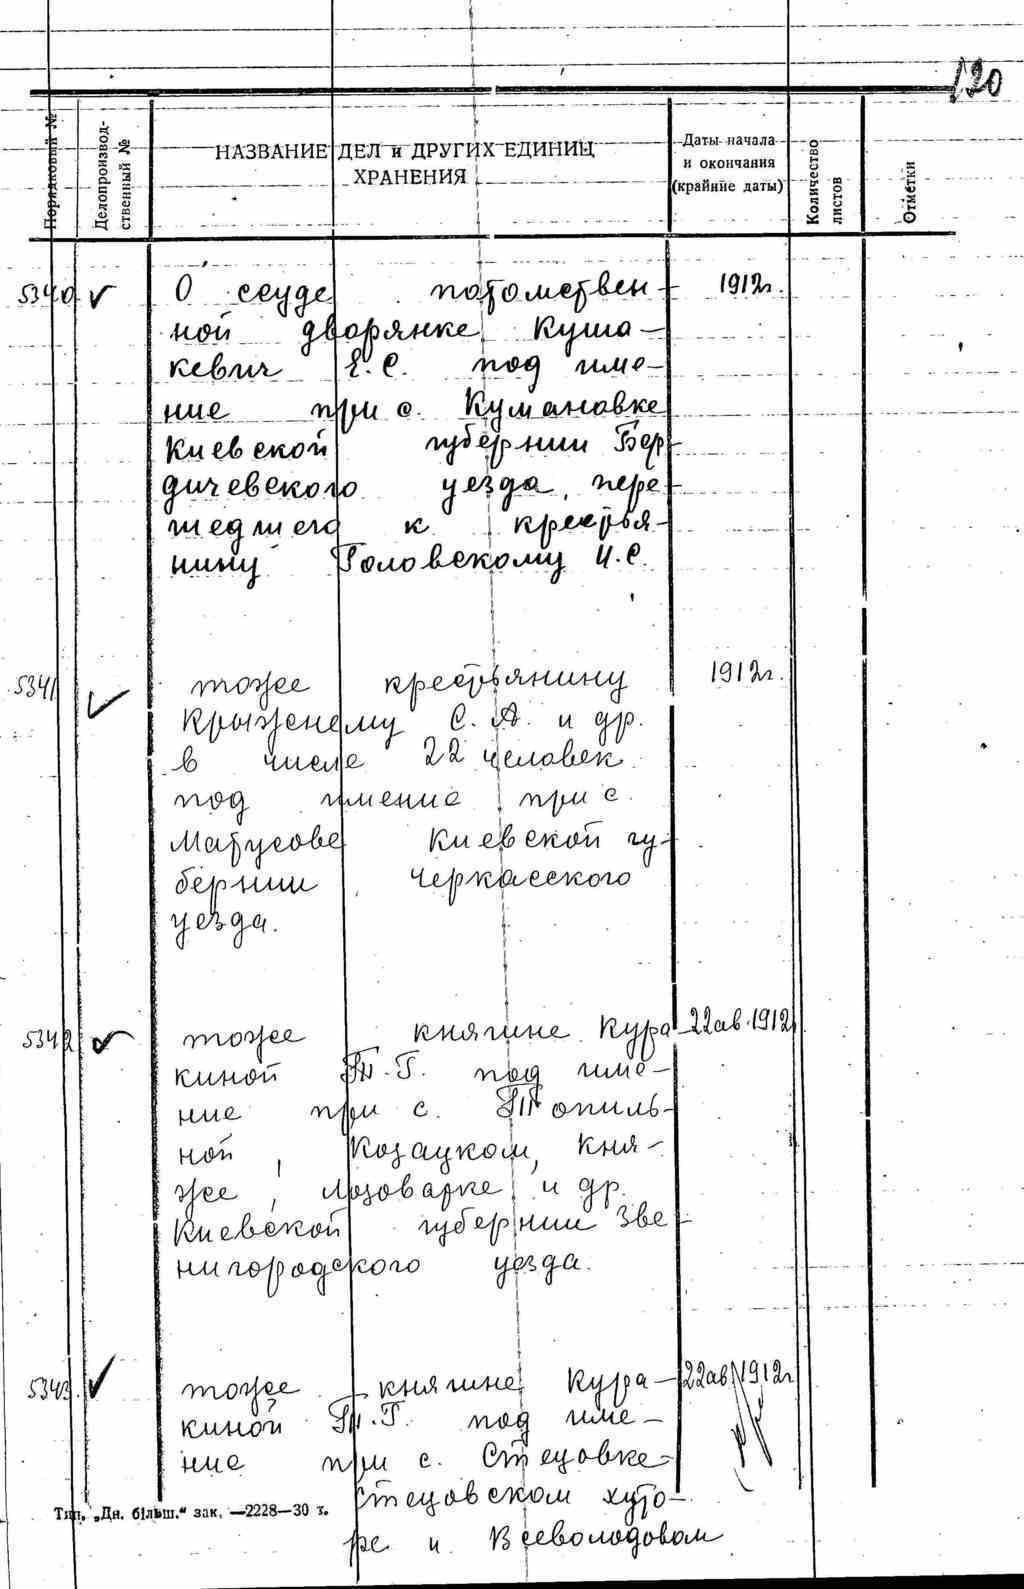 120
Порядковый №
Делопроизвод-
ственный №
НАЗВАНИЕ ДЕЛ и ДРУГИХ ЕДИНИЦ
ХРАНЕНИЯ
Даты начала
и окончания
(крайние даты)
Количество
листов
Отметки
5340 О ссуде потомствен- 1912г.
ной дворянке Куша-
кевич Е.С. под име-
ние при с. Кумановке
Киевской губернии Бер-
дичевского уезда, пере-
шедшего к крестья-
нину Головскому И.С.
5341 тоже крестьянину 1912г.
Крыженему С.А. и др.
в числе 22 человек
под имение при с.
Матусове Киевской гу-
бернии Черкасского
уезда.
5342 тоже княгине Кура- 22ав.1912г
киной Т.Г. под име-
ние при с. Топиль-
ной, Козацком, Кня-
же, Лозоватке и др.
Киевской губернии Зве-
нигородского уезда.
5343. тоже княгине Кура- 22ав.1912г.
киной Т.Г. под име-
ние при с. Стецовке-
Стецовском хуто-
ре и Всеволодовом
Тип. „Дн. більш.“ зак. —2228—30 т.